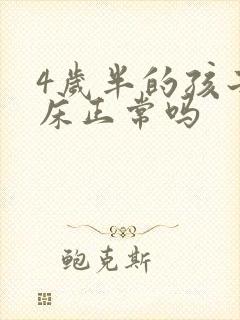 4歲半的孩子
床正常吗
鲍克斯